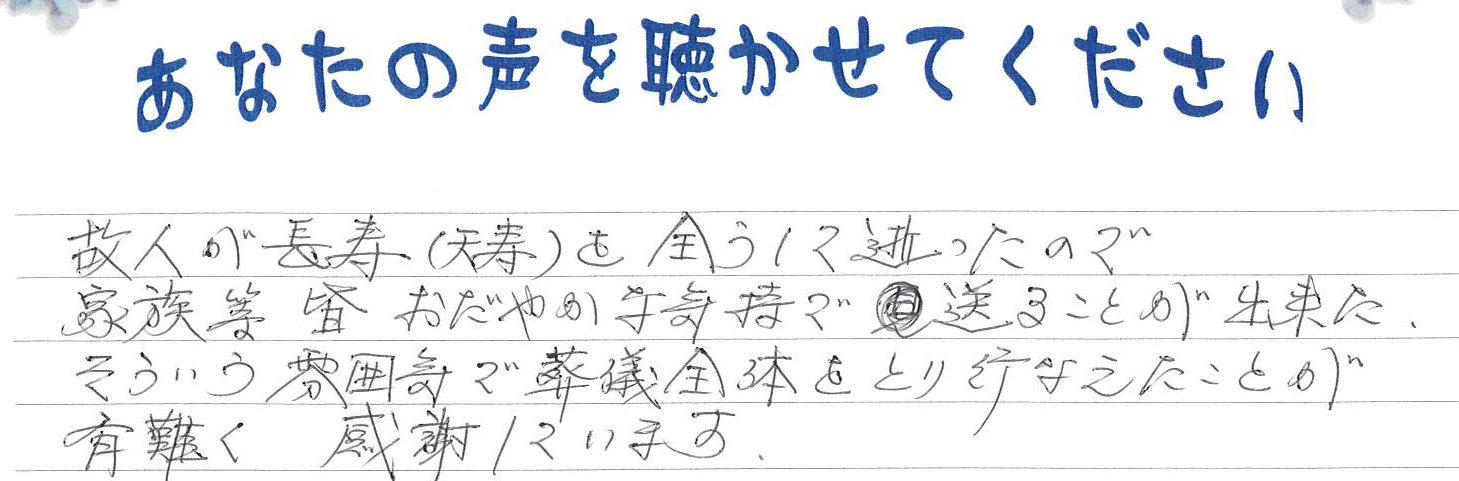 あなたの声を聴かせてください
故人が長寿(天寿)を全うして逝ったので
家族等皆おだやかな気持で送ることが出来た.
そういう雰囲気で葬儀全体をとり行なえたことが
有難く 感謝しています.